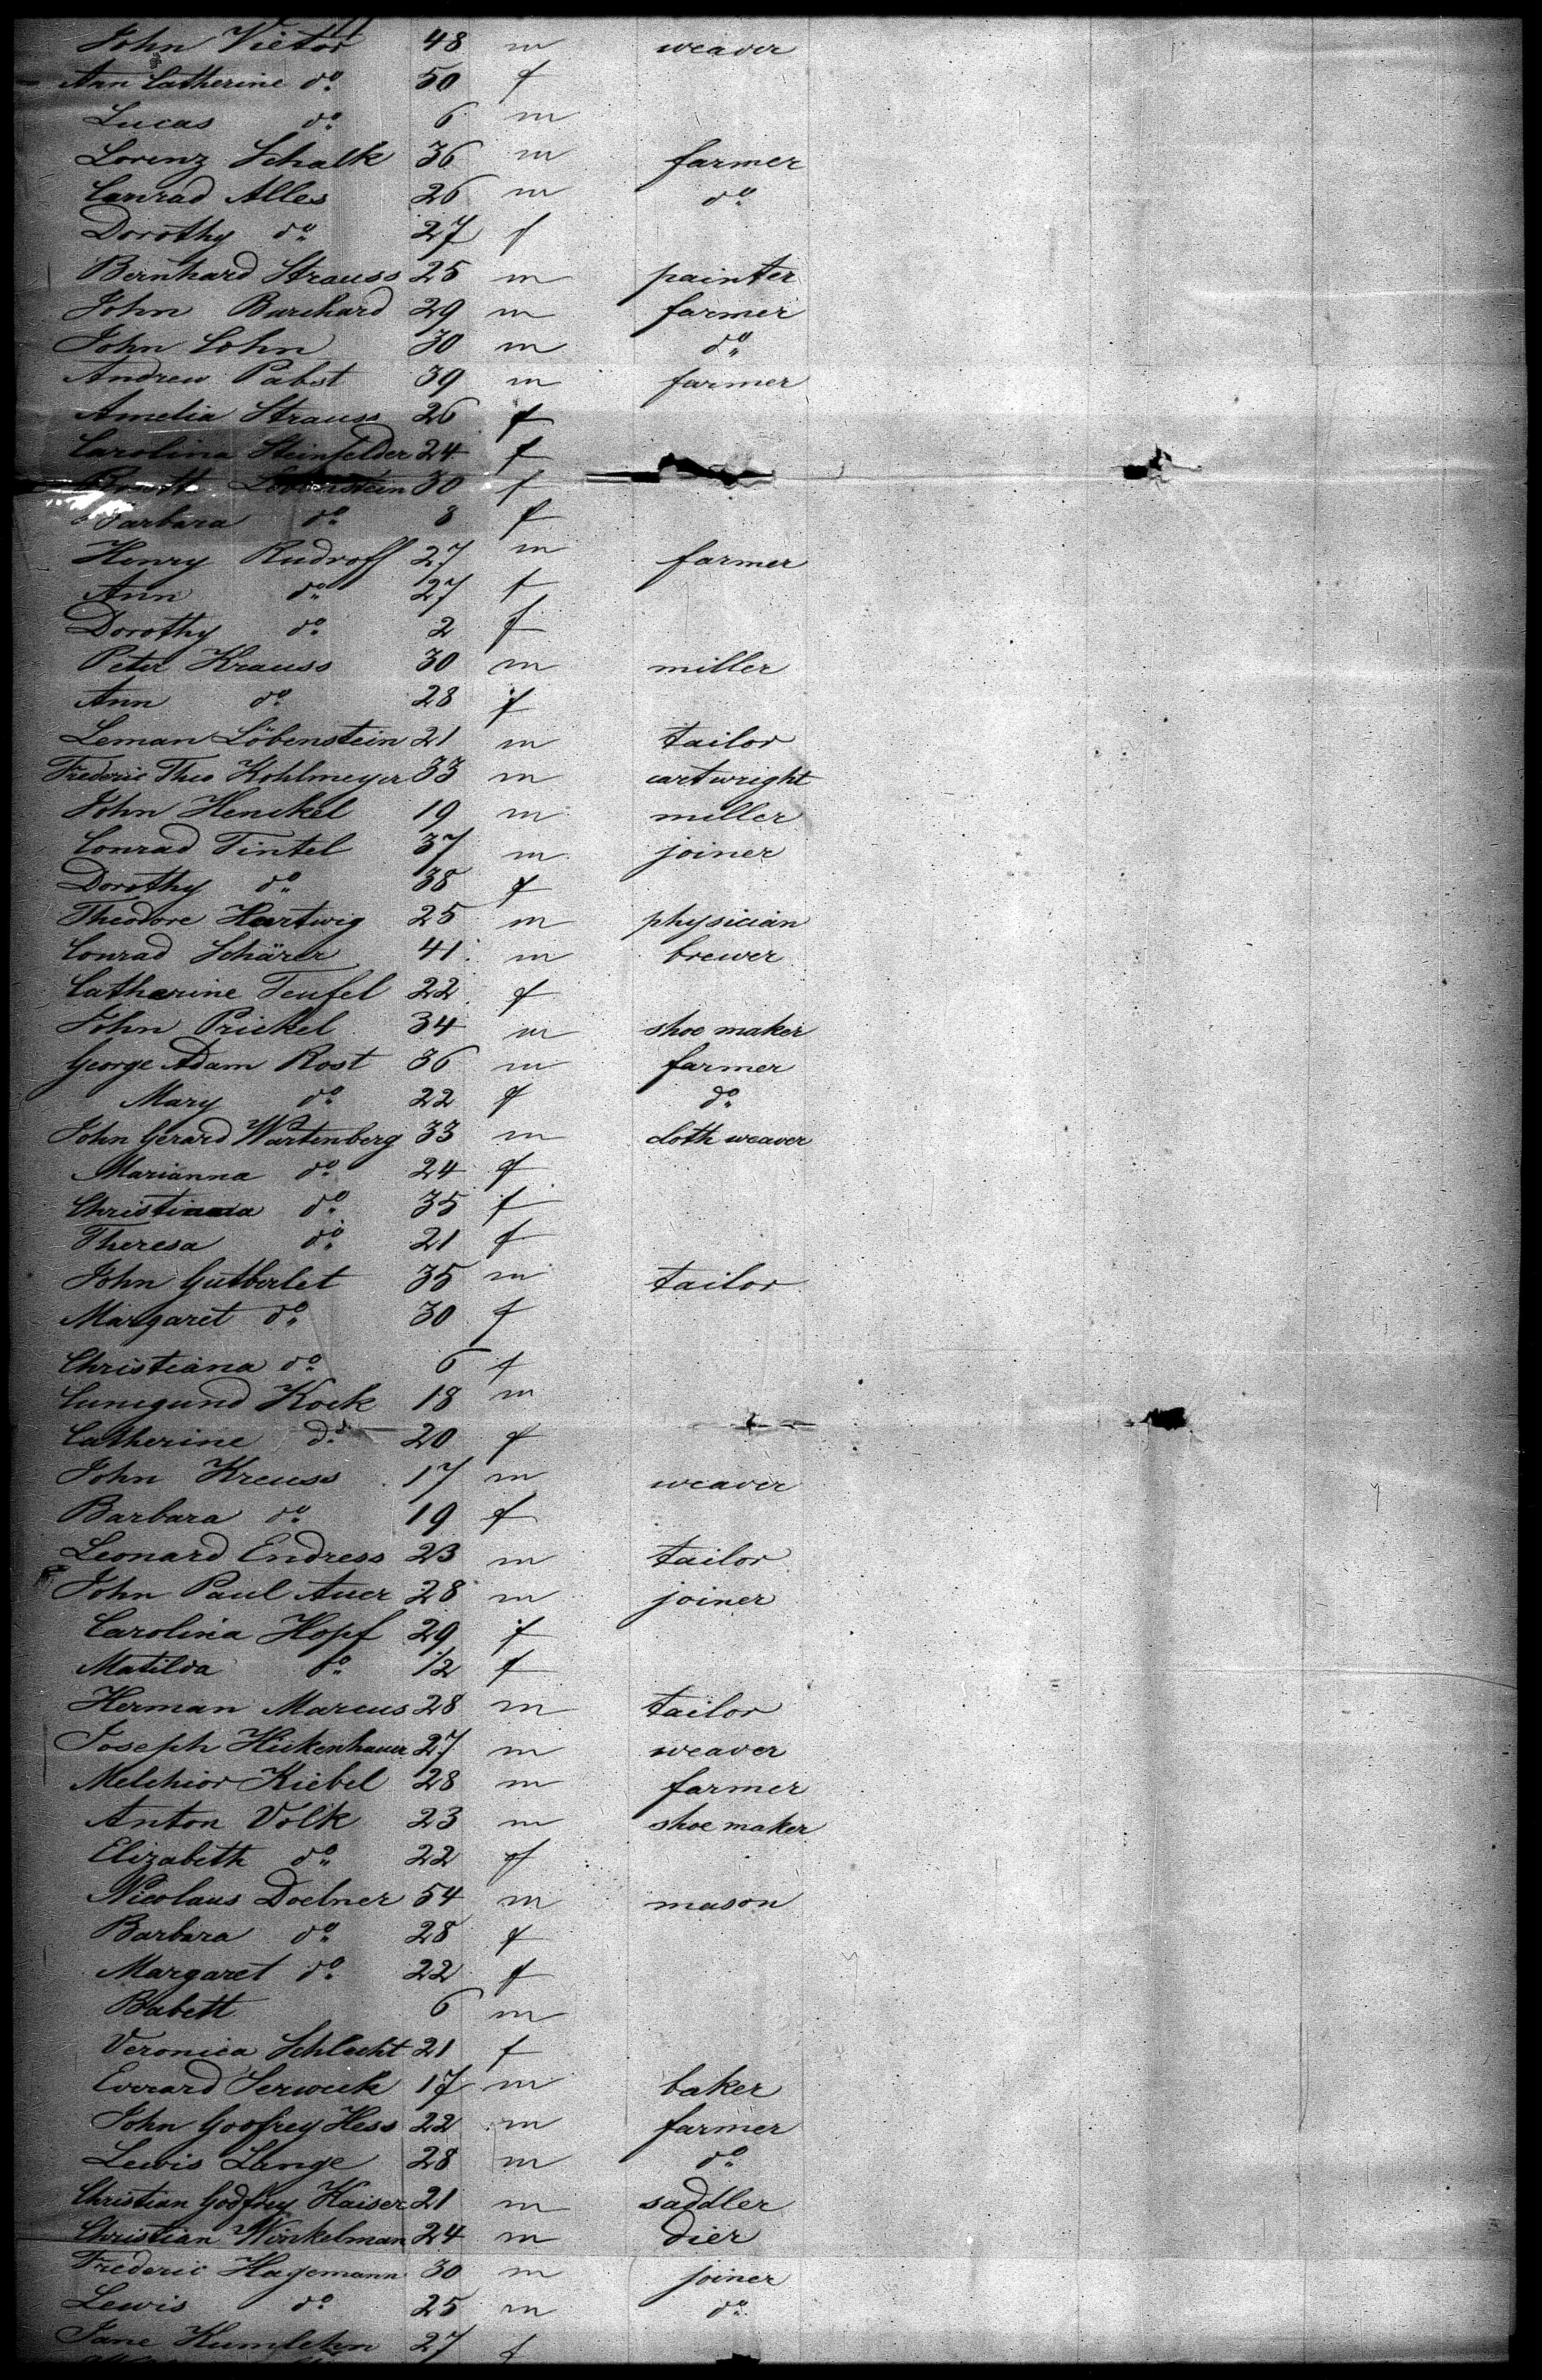 John Victor 48 m weaver
Ann Catherine do 50 f
Lucas do 6 m
Lorenz Schalk 36 m farmer
Conrad Alles 26 m do
Dorothy do 27 f
Bernhard Strauss 25 m painter
John Barchard 29 m farmer
John Cohn 30 m do
Andrew Pabst 39 m farmer
Amelia Strauss 26 f
Carolina Steinfelder 24 f
Löbenstein 30 f
Barbara do 3 f
Henry Rudroff 27 m farmer
Ann do 27 f
Dorothy do 2 f
Peter Krauss 30 m miller
Ann do 28 f
Leman Löbenstein 21 m tailor
Frederic Theo Kohlmeyer 33 m cartwright
John Henckel 19 m miller
Conrad Tintel 37 m joiner
Dorothy do 38 f
Theodore Hartwig 25 m physician
Conrad Schärer 41 m brewer
Catharine Teufel 22 f
John Prickel 34 m shoe maker
George Adam Rost 36 m farmer
Mary do 22 f do
John Gerard Wartenberg 33 m cloth weaver
Marianna do 24 f
Christiana do 35 f
Theresa do 21 f
John Gutberlet 35 m tailor
Margaret do 30 f
Christiana do 6 f
Cunegund Kock 18 m
Catherine do 20 f
John Kreuss 17 m weaver
Barbara do 19 f
Leonard Endress 23 m tailor
John Paul Auer 28 m joiner
Carolina Hopf 29 f
Matilda do 1/2 f
Herman Marcus 28 m tailor
Joseph Hickenhauer 27 m weaver
Melchior Kiebel 28 m farmer
Anton Volk 23 m shoe maker
Elizabeth do 22 f
Nicolaus Doelner 54 m mason
Barbara do 28 f
Margaret do 22 f
Babett 6 m
Veronica Schlecht 21 f
Everard Serweck 17 m baker
John Godfrey Hess 22 m farmer
Lewis Lange 28 m do
Christian Godfrey Kaiser 21 m saddler
Christian Winkelman 24 m dier
Frederic Hagemann 30 m joiner
Lewis do 25 m do
Jane Kumlehn 27 f